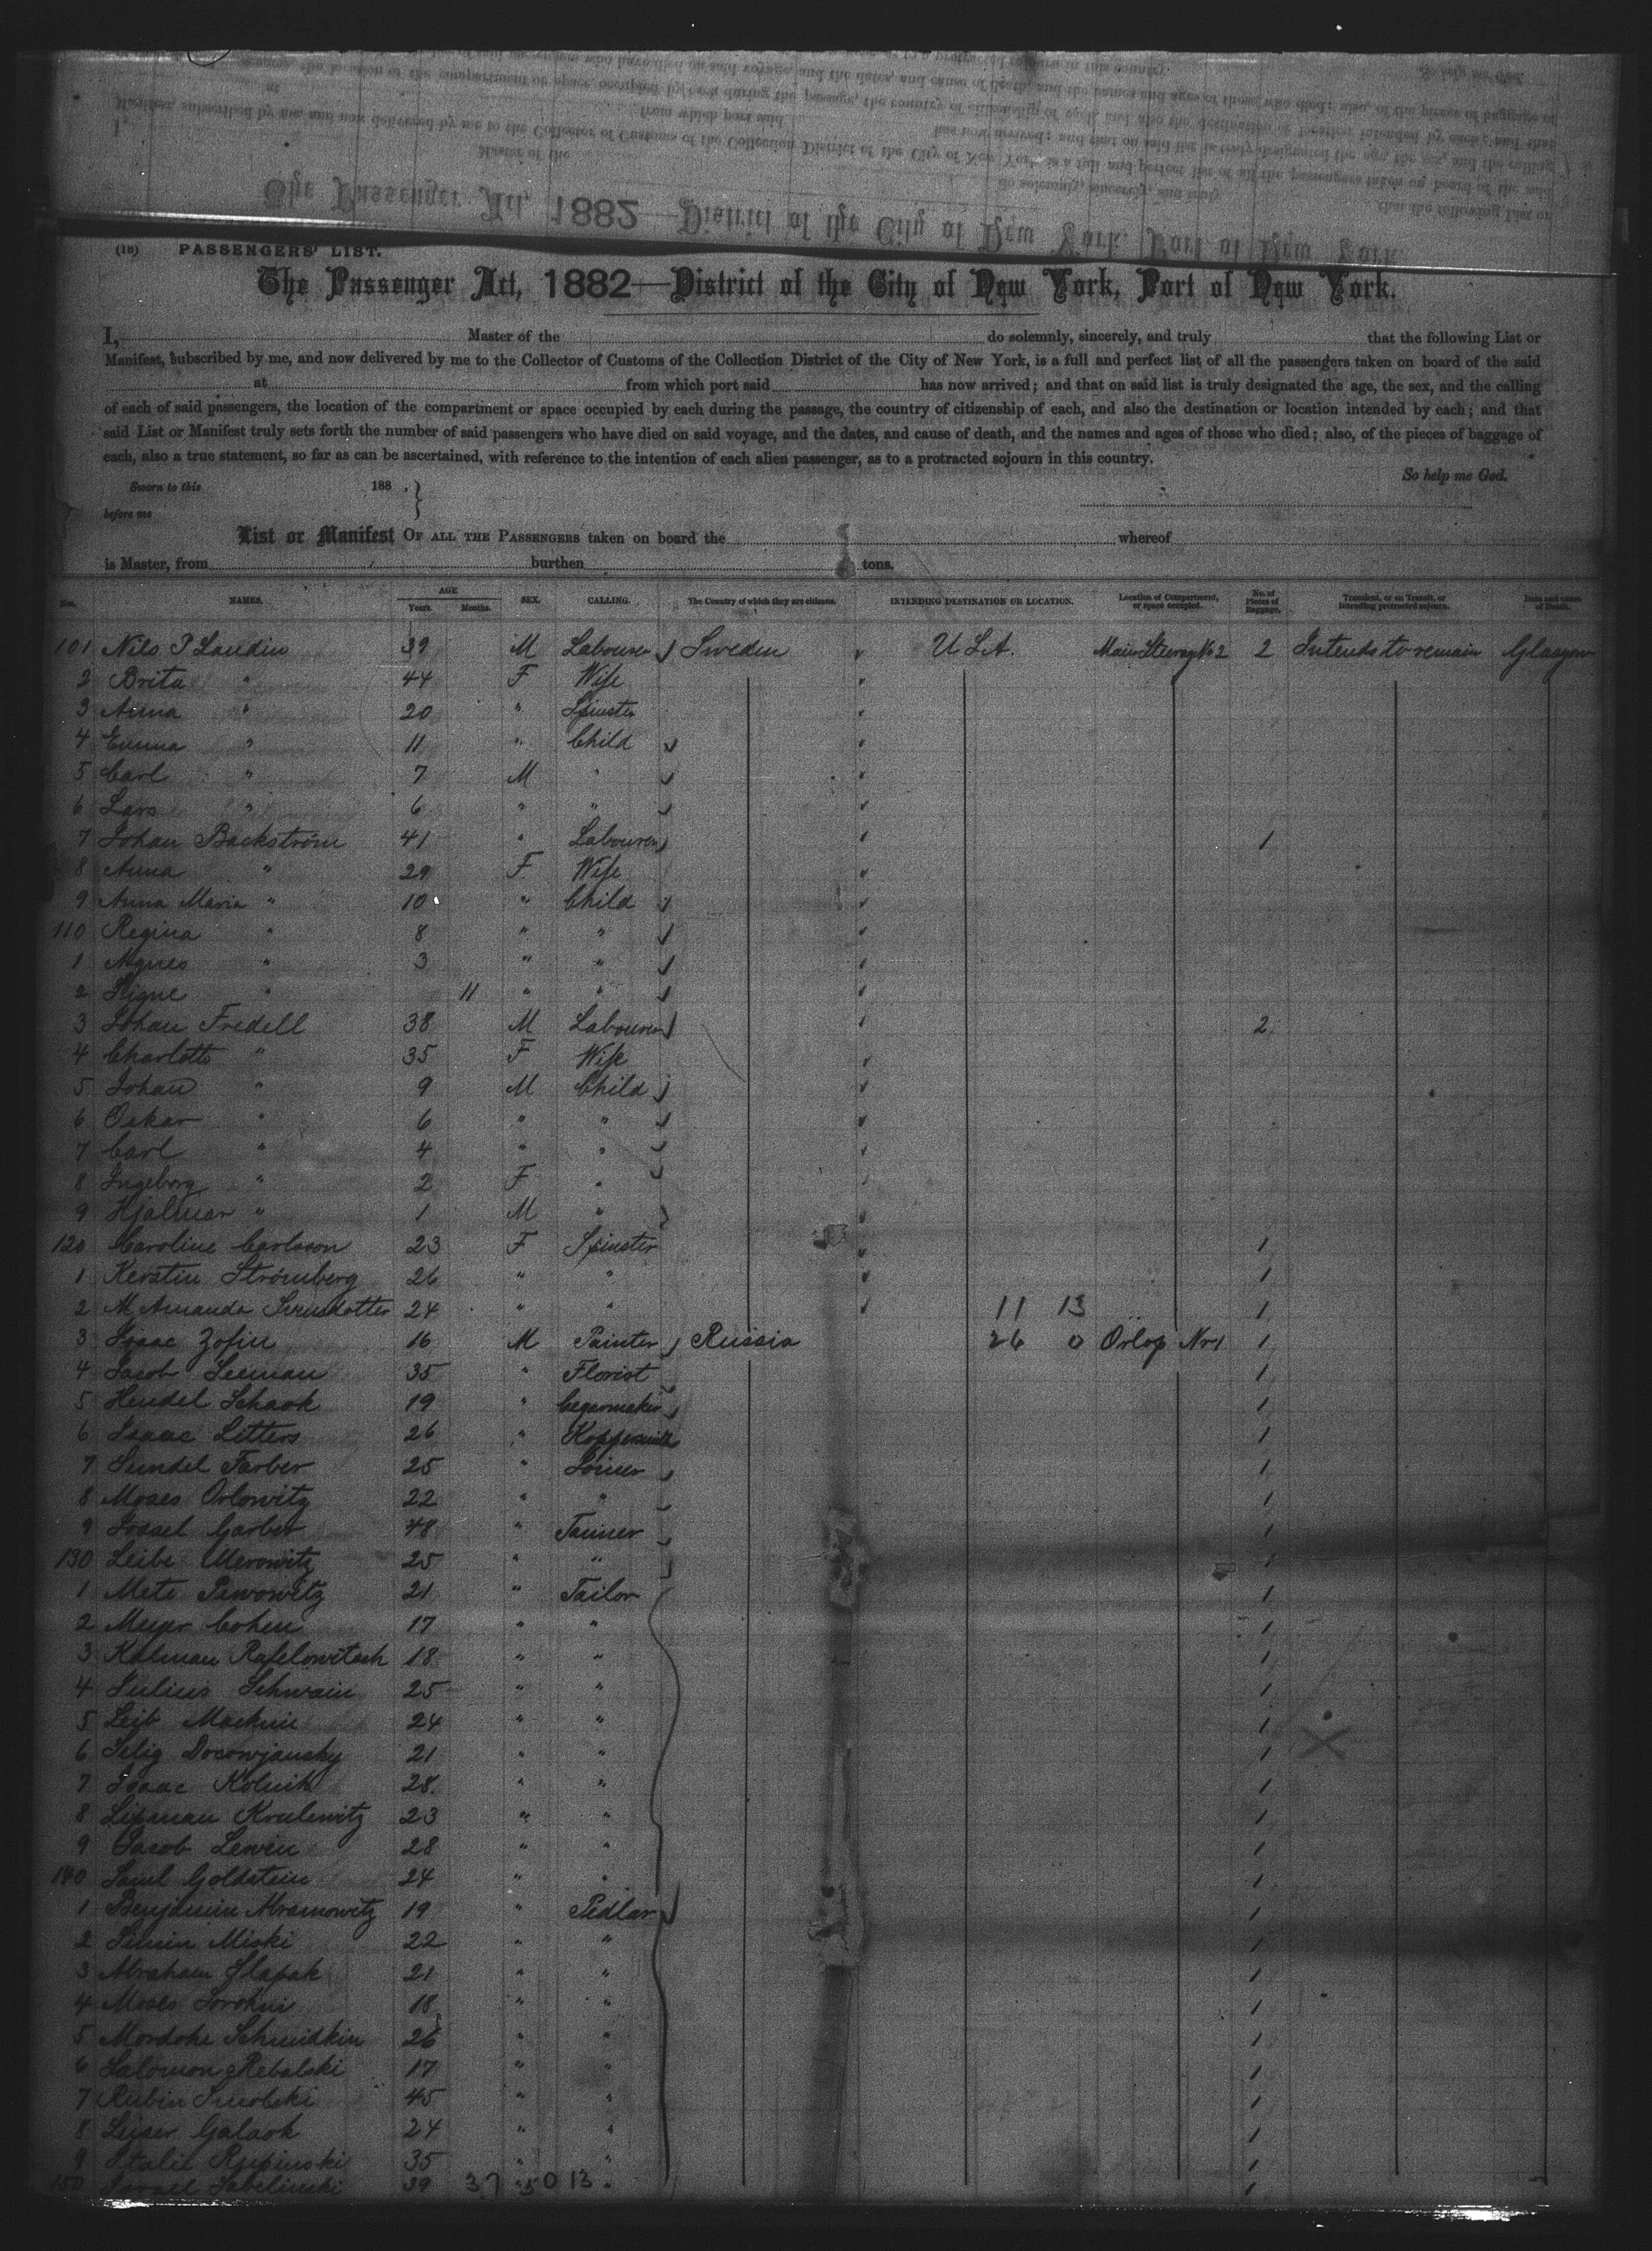 (18) PASSENGERS' LIST.
The Passenger Act, 1882—District of the City of New York, Port of New York.
I, Master of the do solemnly, sincerely, and truly that the following List or
Manifest, subscribed by me, and now delivered by me to the Collector of Customs of the Collection District of the City of New York, is a full and perfect list of all the passengers taken on board of the said
at from which port said has now arrived; and that on said list is truly designated the age, the sex, and the calling
of each of said passengers, the location of the compartment or space occupied by each during the passage, the country of citizenship of each, and also the destination or location intended by each; and that
said List or Manifest truly sets forth the number of said passengers who have died on said voyage, and the dates, and cause of death, and the names and ages of those who died; also, of the pieces of baggage of
each, also a true statement, so far as can be ascertained, with reference to the intention of each alien passenger, as to a protracted sojourn in this country.
So help me God.
Sworn to this 188 .
before me
List or Manifest OF ALL THE PASSENGERS taken on board the whereof
is Master, from burthen tons.
Nos. NAMES. AGE Years. Months. SEX. CALLING. The Country of which they are citizens. INTENDING DESTINATION OR LOCATION. Location of Compartment, or space occupied. No. of Pieces of Baggage. Transient, or on Transit, or intending protracted sojourn. Date and cause of Death.
101 Nils P Landin 39 M Labourer Sweden " U.S.A. Main Steerage No 2 2 Intends to remain Glasgow
2 Brita " 44 F Wife "
3 Anna " 20 " Spinster "
4 Emma " 11 " Child "
5 Carl " 7 M " "
6 Lars " 6 " " "
7 Johan Backström 41 " Labourer " 1
8 Anna " 29 F Wife "
9 Anna Maria " 10 " Child "
110 Regina " 8 " " "
1 Agnes " 3 " " "
2 Signe " 11 " " "
3 Johan Fredell 38 M Labourer " 2
4 Charlotte " 35 F Wife "
5 Johan " 9 M Child "
6 Oskar " 6 " " "
7 Carl " 4 " " "
8 Ingeborg " 2 F " "
9 Hjalmar " 1 M " "
120 Caroline Carlsson 23 F Spinster " 1
1 Kerstin Strömberg 26 " " " 1
2 M Amanda Svensdotter 24 " " " 11 13 1
3 Isaac Zofin 16 M Painter Russia 26 0 Orlop No 1 1
4 Jacob Leeman 35 " Florist 1
5 Hendel Schaok 19 " Cegarmaker 1
6 Isaac Litters 26 " Koppersmith 1
7 Sundel Farber 25 " Joiner 1
8 Moses Orlowitz 22 " " 1
9 Jossel Garber 48 " Tanner 1
130 Leibe Merowitz 25 " " 1
1 Mete Pewowitz 21 " Tailor 1
2 Meyer Cohen 17 " " 1
3 Kalman Rafelowitsch 18 " " 1
4 Julius Schwain 25 " " 1
5 Leib Mackin 24 " " 1
6 Selig Docowjansky 21 " " 1
7 Isaac Kolnik 28 " " 1
8 Lipman Krulewitz 23 " " 1
9 Jacob Lewin 28 " " 1
140 Saml Goldstein 24 " " 1
1 Benjamin Abramowitz 19 " Pedlar 1
2 Simin Miski 22 " " 1
3 Abraham Slapak 21 " " 1
4 Moses Sorokin 18 " " 1
5 Mordche Schmidkin 26 " " 1
6 Salomon Rebalski 17 " " 1
7 Rubin Smolski 45 " " 1
8 Leiser Galaok 24 " " 1
9 Italie Rypinski 35 " " 1
150 Israel Sabelinski 39 37 50 13 " 1